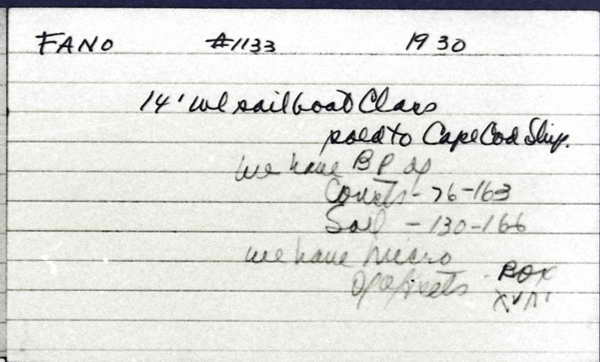 FANO #1133 1930
14' wl sailboat Class
sold to Cape Cod Ship.
we have BP of
Const - 76-163
Sail - 130-166
we have micro
of offsets - BOX
XVII